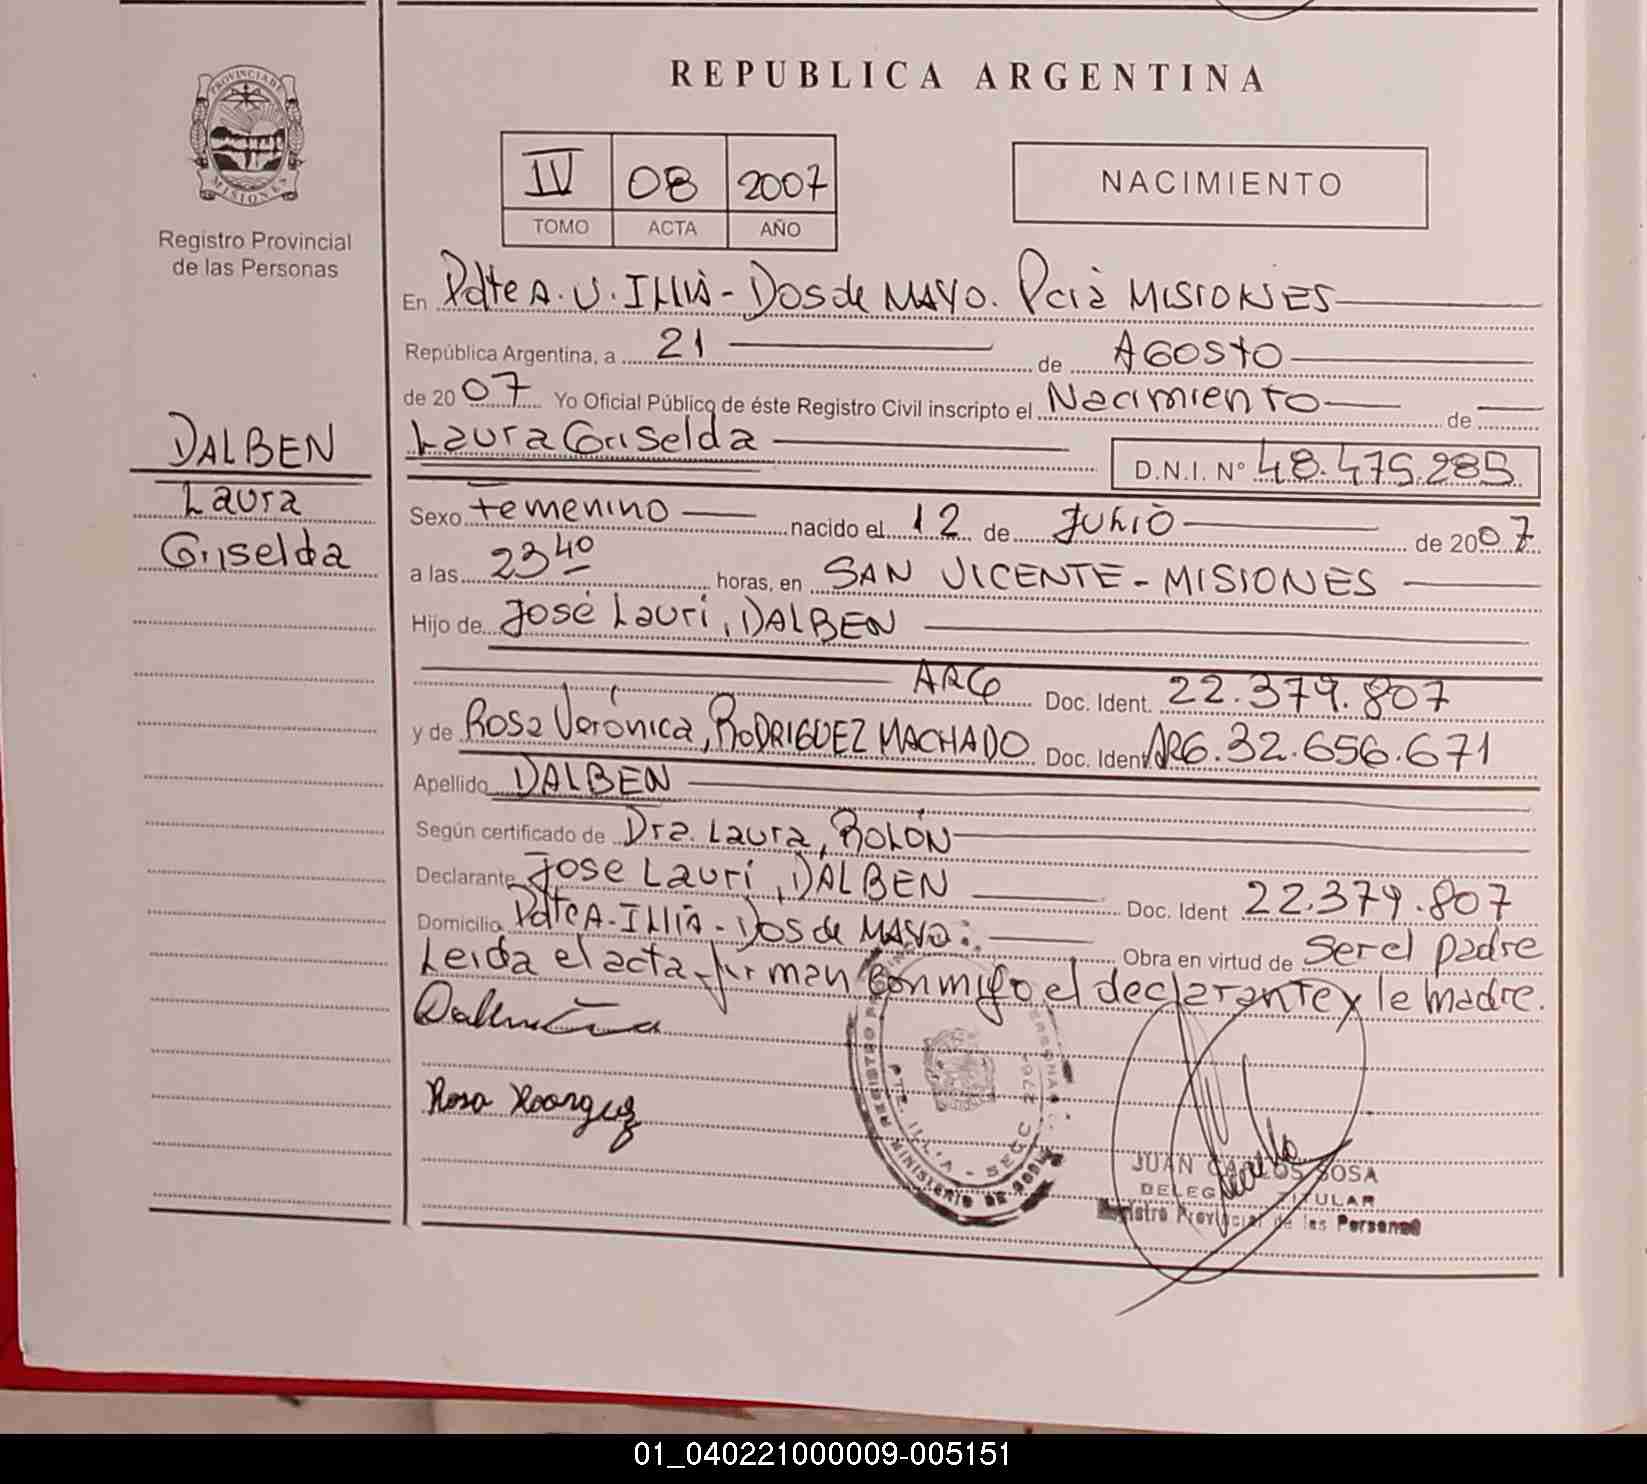 REPUBLICA ARGENTINA
PROVINCIA DE
MISIONES
Registro Provincial
de las Personas
IV 08 2007
TOMO ACTA AÑO
NACIMIENTO
En Pdte A. U. ILLIA - Dos de MAYO. Pcia MISIONES
República Argentina, a 21 de AGOSTO
de 2007 Yo Oficial Público de éste Registro Civil inscripto el Nacimiento de
DALBEN
Laura
Griselda
Laura Griselda D.N.I. N° 48.475.285
Sexo Femenino nacido el 12 de JULIO de 2007
a las 23 40 horas, en SAN VICENTE - MISIONES
Hijo de José Lauri, DALBEN
ARG Doc. Ident. 22.379.807
y de Rosa Verónica, RODRIGUEZ MACHADO Doc. Ident. ARG. 32.656.671
Apellido DALBEN
Según certificado de Dra. Laura, ROLÓN
Declarante Jose Lauri, DALBEN Doc. Ident 22.379.807
Domicilio Pdte A. ILLIA - Dos de MAYO. Obra en virtud de Ser el padre
Leida el acta firman conmigo el declarante y la madre.
Rosa Rodriguez
PTE. ILLIA - SECC 2761
MINISTERIO DE GOBIE
JUAN CARLOS SOSA
DELEGADO TITULAR
Registro Provincial de las Personas
01_040221000009-005151